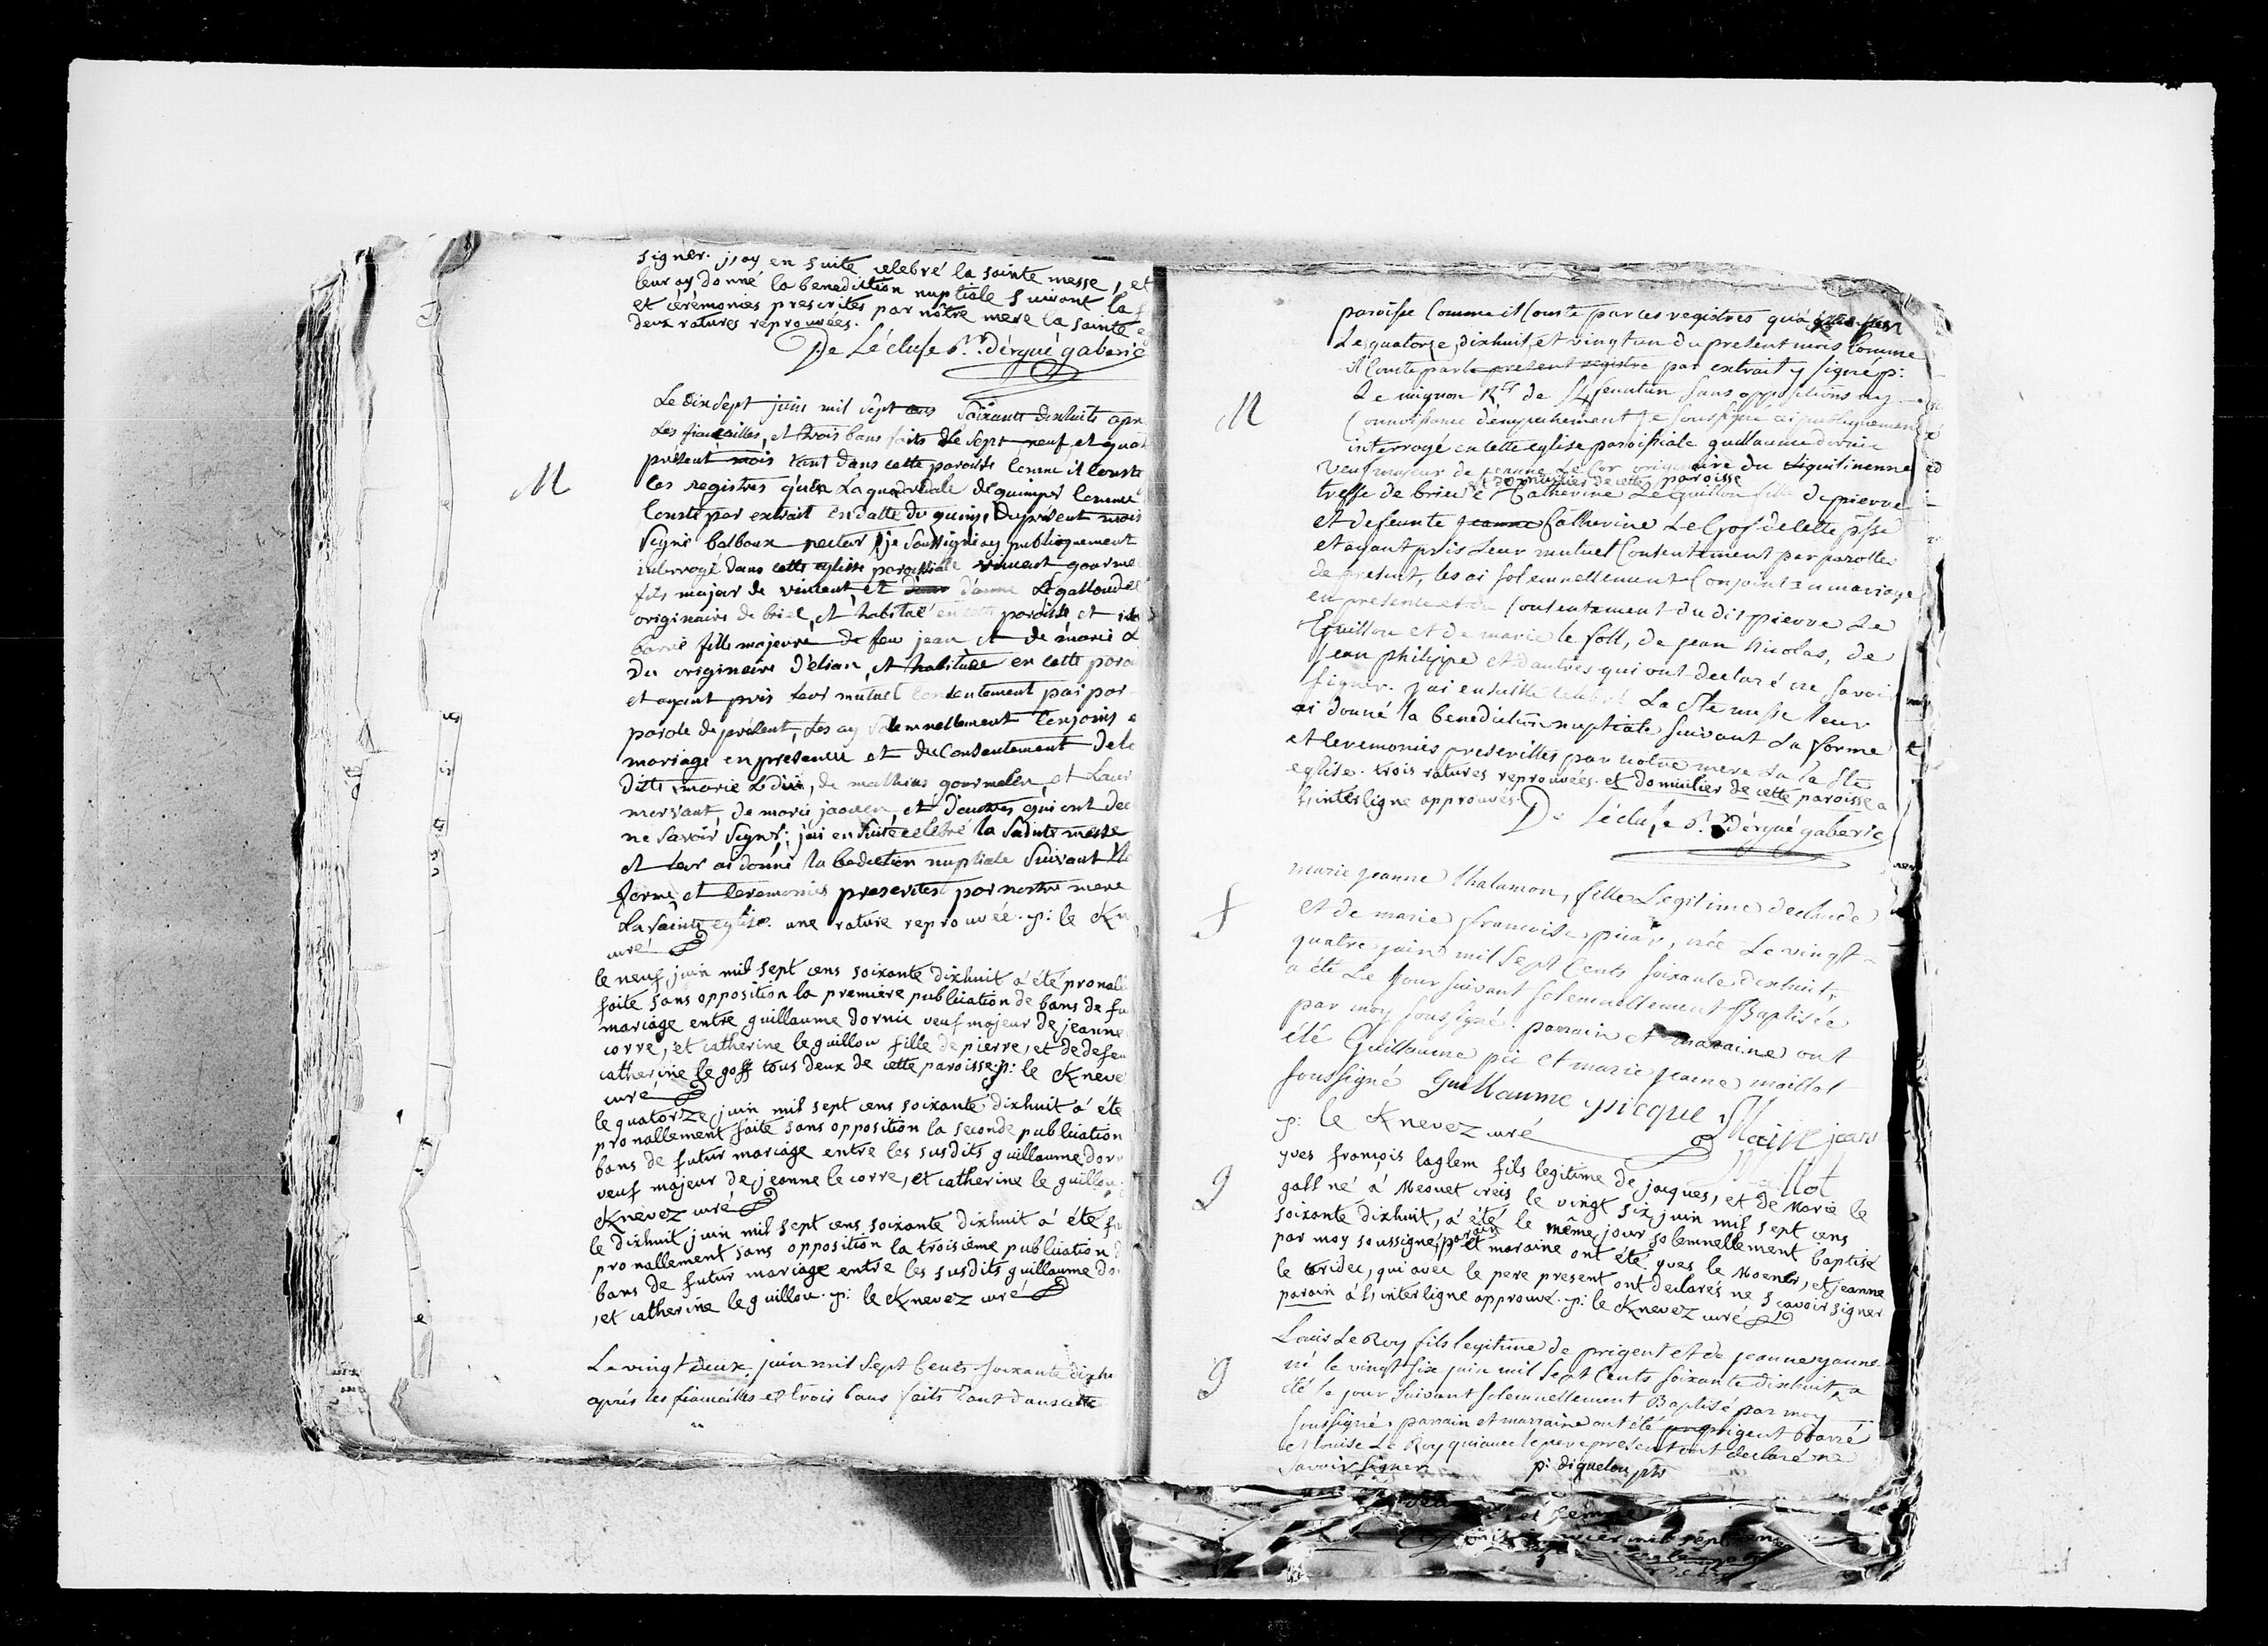 signer. j,ay en suite celebré la sainte messe, et
leur ay donné la benediction nuptiale suivant la
et cérémonies prescrites par nôtre mere la sainte
deux ratures reprouvées.
De Lécluse r.r Dérgué gaberic
M
Le dix sept juin mil sept cens soixante dixhuits apr
Les fiancailles, et trois bans faits le sept neuf, et quat
présent mois tant dans cette paroisse comme il conste
les registres qu'en la quadredale de quimper comme
conste par extrait en datte du quinze du présent mois
signé balbous recteur je soussigné ay publicquement
interrogé dans cette eglise paroissiale vincent gourme
fils majeur de vincent, et d'anne Le gallou des
originaire de briec, et habitué en cette paroisse et
barré fille majeure de feu jean et de marie L
Du originaire d'elian, et habituée en cette paroi
et ayant pris leur mutuel consentement pai par
parole de présent, Les ay solemnellement conjoins e
mariage en presence et du consentement de la
ditte marie Le du, de mathias gourmelen, et Laur
, de marie jaouen, et d'autres qui ont dec
ne savoir signer; jai en suite celebré la sainte messe
et leur ai donné la bediction nuptiale suivant la
forme, et ceremonies prescrites par nostre mere
La sainte eglise. une rature reprouvée. p: le Kne
curé
le neuf juin mil sept cens soixante dixhuit a été pronale
faite sans opposition la premiere publication de bans de fu
mariage entre guillaume dornic veuf majeur de jeanne
corre, et catherine le guillou fille de pierre, et de defeu
catherine le goff tous deux de cette paroisse. p: le Kneve
curé
le quatorze juin mil sept cens soixante dixhuit a été
pronallement faite sans opposition la seconde publication
bans de futur mariage entre les susdits guillaume dor
veuf majeur de jeanne le corre, et catherine le guillou
Knevez curé
le dixhuit juin mil sept cens soixante dixhuit a été fa
pronallement sans opposition la troisième publication
bans de futur mariage entre les susdits guillaume do
, et catherine le guillou. p: le Knevez curé
Le vingt deux juin mil sept cents soixante dixhu
aprés les fiancailles et trois bans faits tant dans cette
paroisse comme il conste par les registres qu'a
Le quatorze, dixhuit, et vingt un du present mois comme
il conste par le present registre par extrait y signé p:
M
Le mignon Rtr de sans oppositions ny
connoissance d'empechement je soussigné ai publiquement
interrogé en cette eglise paroissiale guillaume dornic
veuf majeur de jeanne Le Cor originaire du
et domicilier de cette paroisse
tresse de brieu e Catherine Le guillou fille de pierre
et defeunte jeanne Catherine Le Gof de cette psse
et ayant pris Leur mutuel consentement par parolles
de present, les ai solemnellement conjoint en mariage
en presence et du consentement du dit pierre Le
Guillou et de marie le foll, de jean Nicolas, de
jean philippe et dautres qui ont declaré ne savoir
signer. jai ensuitte celebré La Ste messe leur
ai donné la benediction nuptiale suivant La forme
et ceremonies prescrittes par notre mere La Ste
eglise. trois ratures reprouvées. et domicilier de cette paroisse a
l'interligne approuvés.
De Lécluse r.r Dérgué gaberic
f
marie jeanne thalamon, fille Legitime de claude
et de marie francoise picar, née Le vingt
quatre juin mil sept cents soixante dixhuit,
a été Le jour suivant solemnellement Baptisée
par moy soussigné. parrain et maraine ont
été Guillaume pic et marie jeanne maillot
soussigné Guillaume picque Marie jean
p: le Knevez curé Maillot
g
yves françois laglem fils legitime de jacques, et de Marie le
gall né a Mesnet creis le vingt six juin mil sept cens
soixante dixhuit, a été le même jour solemnellement baptisé
par moy soussigné, parain et maraine ont été yves le Moenlr, et jeanne
le toridec, qui avec le pere present ont declarés ne scavoir signer
parain a l'interligne approuvé. p: le Knevez curé
g
Louis Le Roy fils legitime de prigent et de jeanne yaune
né le vingt six juin mil sept cents soixante dixhuit, a
été le jour suivant solemnellement Baptisé par moy
soussigné. parrain et marraine ont été prigent barré
et louise Le Roy qui avec le pere present ont declaré ne
savoir signer
p: diguelou ptre